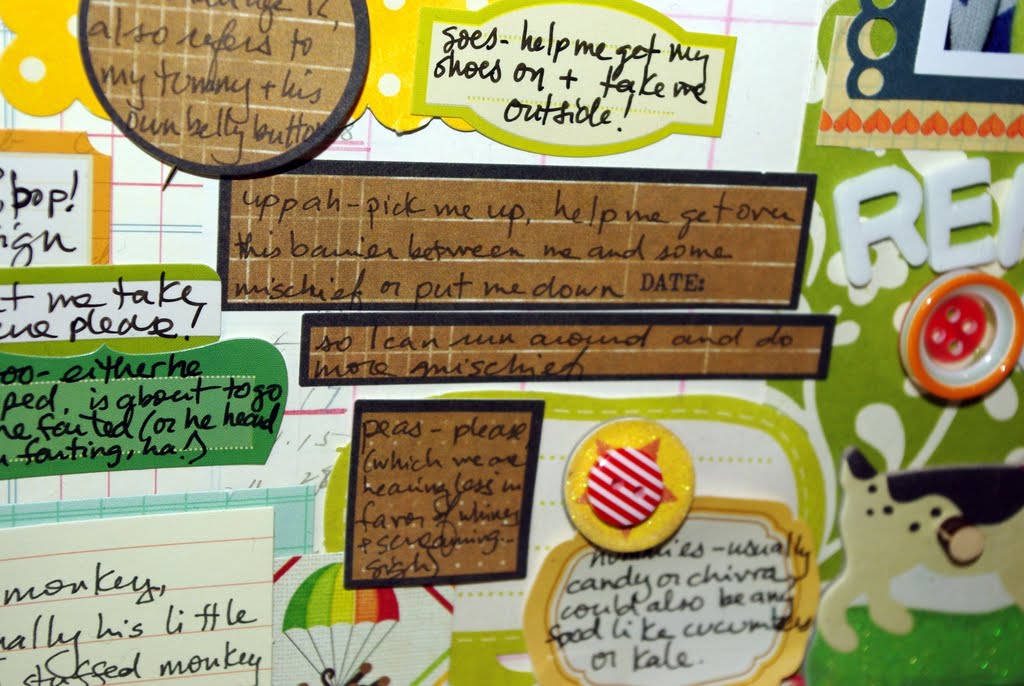 also refers to
my tummy + his
own belly button
goes- help me get my
shoes on + take me
outside!
bop!
uppah - pick me up, help me get over
this barrier between me and some
mischief or put me down DATE:
so I can run around and do
more mischief
me take
please!
either he
is about to go
farted (or he heard
farting, ha!)
peas - please
(which we are
hearing less in
favor of whines
+ screaming...
sigh)
nummies - usually
candy or chivra,
could also be any
food like cucumbers
or kale.
monkey,
his little
stuffed monkey